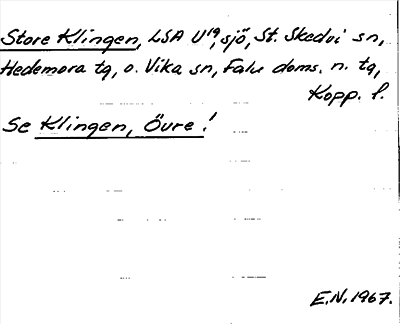 Store Klingen, LSA U19, sjö, St. Skedvi sn,
Hedemora tg, o. Vika sn, Falu doms. n. tg,
Kopp. l.
Se Klingen, Övre!
E.N. 1967.